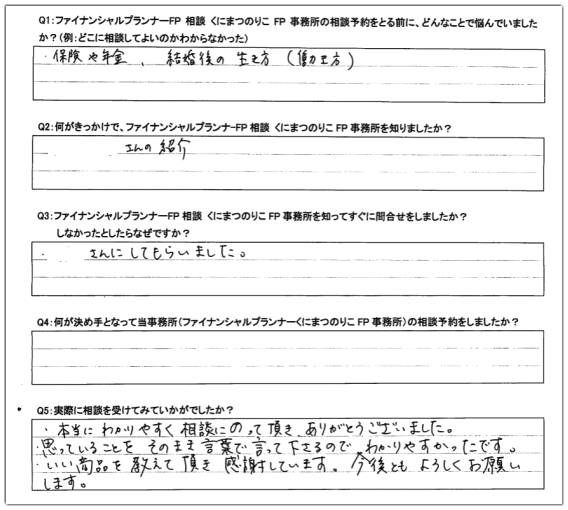 Q1:ファイナンシャルプランナーFP 相談 くにまつのりこ FP 事務所の相談予約をとる前に、どんなことで悩んでいました
か？(例:どこに相談してよいのかわからなかった)
・保険や年金、結婚後の生き方(働き方)
Q2:何がきっかけで、ファイナンシャルプランナーFP 相談 くにまつのりこ FP 事務所を知りましたか？
さんの紹介
Q3:ファイナンシャルプランナーFP 相談 くにまつのりこ FP 事務所を知ってすぐに問合せをしましたか？
しなかったとしたらなぜですか？
・ さんにしてもらいました。
Q4:何が決め手となって当事務所(ファイナンシャルプランナーくにまつのりこ FP 事務所)の相談予約をしましたか？
Q5:実際に相談を受けてみていかがでしたか？
・本当にわかりやすく相談にのって頂き、ありがとうございました。
・思っていることをそのまま言葉で言って下さるので、わかりやすかったです。
・いい商品を教えて頂き感謝しています。今後ともよろしくお願い
します。